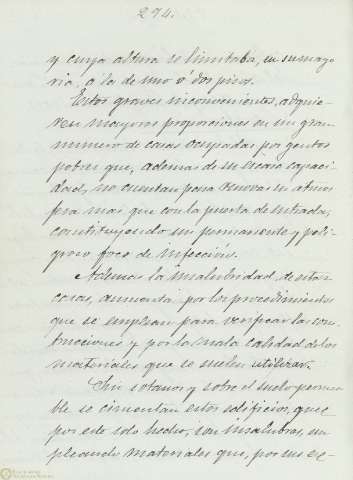 274.
y cuya altura se limitaba, en su mayo
ria, á la de uno ó dos pisos.
Estos graves inconvenientes, adquie-
ren mayores proporciones en un gran
numero de casas ocupadas por gentes
pobres que, ademas de su escasa capaci
dad, no cuentan para renovar su atmos
fera mas que con la puerta de entrada,
constituyendo un permanente y peli
groso foco de infección.
Ademas la insalubridad de estas
casas, aumenta por los procedimientos
que se emplean para verificar las cons
trucciones y por la mala calidad de los
materiales que se suelen utilizar.
Sin sotanos y sobre el suelo permea
ble se cimentan estos edificios, que
por este solo hecho, son insalubres, em
pleando materiales que, por su es-